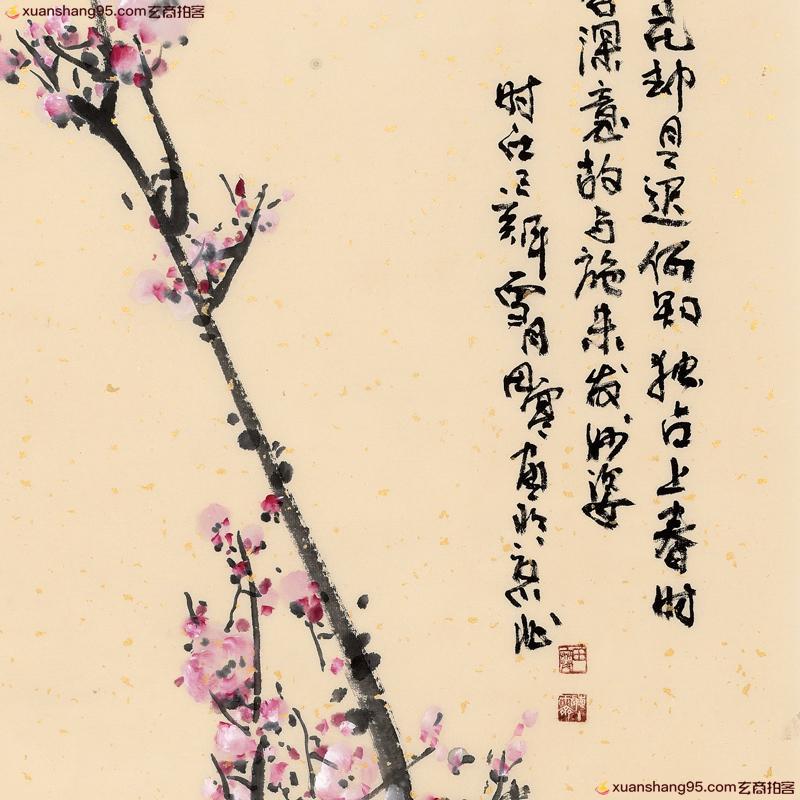 xuanshang95.com玄商拍客
花却是迟何如独占上春时
含深意故与施朱发妙姿
时在辛年雪月田画於京北
xuanshang95.com玄商拍客